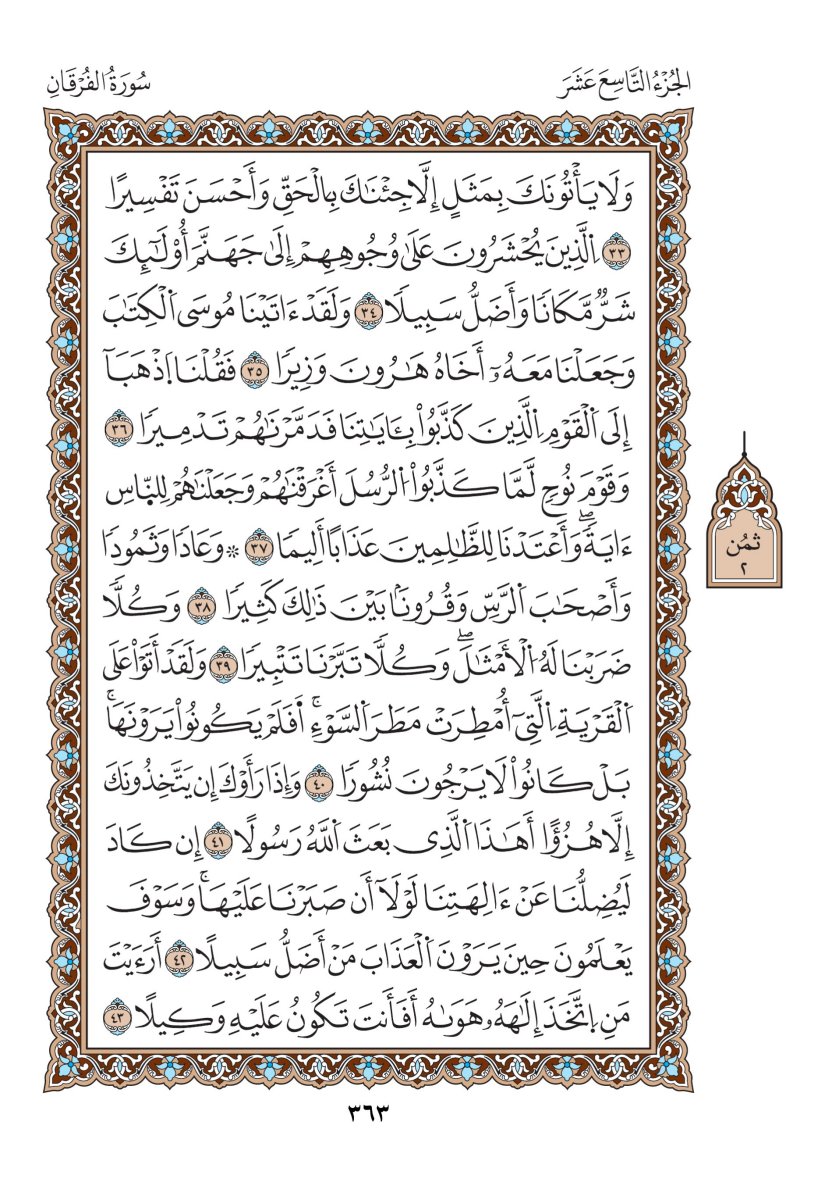 الجُزْءُ التَّاسِعَ عَشَرَ
سُورَةُ الفُرْقَانِ
وَلَا يَأْتُونَكَ بِمَثَلٍ إِلَّا جِئْنَٰكَ بِالْحَقِّ وَأَحْسَنَ تَفْسِيرًا
٣٣ اِ۬لَّذِينَ يُحْشَرُونَ عَلَىٰ وُجُوهِهِمْ إِلَىٰ جَهَنَّمَ أُوْلَٰٓئِكَ
شَرٌّ مَّكَانًا وَأَضَلُّ سَبِيلًا ٣٤ وَلَقَدْ ءَاتَيْنَا مُوسَى اَ۬لْكِتَٰبَ
وَجَعَلْنَا مَعَهُۥٓ أَخَاهُ هَٰرُونَ وَزِيرًا ٣٥ فَقُلْنَا اَ۪ذْهَبَآ
إِلَى اَ۬لْقَوْمِ اِ۬لَّذِينَ كَذَّبُواْ بِـَٔايَٰتِنَا فَدَمَّرْنَٰهُمْ تَدْمِيرًا ٣٦
وَقَوْمَ نُوحٍ لَّمَّا كَذَّبُواْ اُ۬لرُّسُلَ أَغْرَقْنَٰهُمْ وَجَعَلْنَٰهُمْ لِلنَّاسِ
ءَايَةًۖ وَأَعْتَدْنَا لِلظَّٰلِمِينَ عَذَابًا أَلِيمًا ٣٧ ۞ وَعَادًا وَثَمُودًا
وَأَصْحَٰبَ اَ۬لرَّسِّ وَقُرُونَۢا بَيْنَ ذَٰلِكَ كَثِيرًا ٣٨ وَكُلًّا
ضَرَبْنَا لَهُ اُ۬لْأَمْثَٰلَۖ وَكُلًّا تَبَّرْنَا تَتْبِيرًا ٣٩ وَلَقَدْ أَتَوْاْ عَلَى
اَ۬لْقَرْيَةِ اِ۬لَّتِيٓ أُمْطِرَتْ مَطَرَ اَ۬لسَّوْءِۚ أَفَلَمْ يَكُونُواْ يَرَوْنَهَاۚ
بَلْ كَانُواْ لَا يَرْجُونَ نُشُورًا ٤٠ وَإِذَا رَأَوْكَ إِن يَتَّخِذُونَكَ
إِلَّا هُزُؤًا أَهَٰذَا اَ۬لَّذِى بَعَثَ اَ۬للَّهُ رَسُولًا ٤١ إِن كَادَ
لَيُضِلُّنَا عَنْ ءَالِهَتِنَا لَوْلَآ أَن صَبَرْنَا عَلَيْهَاۚ وَسَوْفَ
يَعْلَمُونَ حِينَ يَرَوْنَ اَ۬لْعَذَابَ مَنْ أَضَلُّ سَبِيلًا ٤٢ أَرَءَيْتَ
مَنِ اِ۪تَّخَذَ إِلَٰهَهُۥ هَوَىٰهُ أَفَأَنتَ تَكُونُ عَلَيْهِ وَكِيلًا ٤٣
ثُمُن
٢
٣٦٣